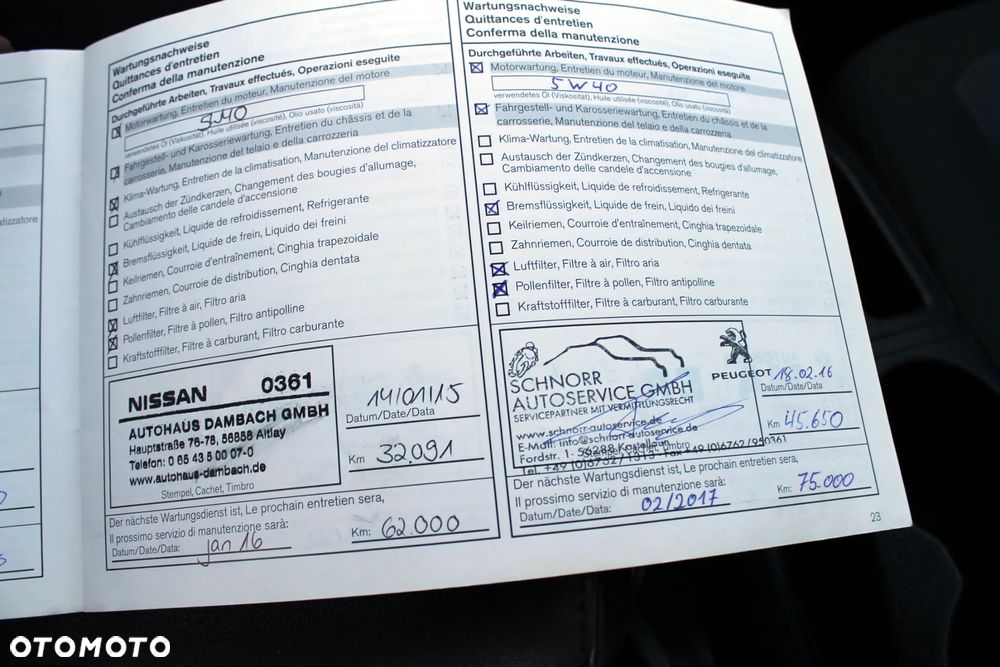 Wartungsnachweise
Quittances d'entretien
Conferma della manutenzione
Durchgeführte Arbeiten, Travaux effectués, Operazioni eseguite
Motorwartung, Entretien du moteur, Manutenzione del motore
verwendetes Öl (Viskosität), Huile utilisée (viscosité), Olio usato (viscosità)
Fahrgestell- und Karosseriewartung, Entretien du châssis et de la
carrosserie, Manutenzione del telaio e della carrozzeria
Klima-Wartung, Entretien de la climatisation, Manutenzione del climatizzatore
Austausch der Zündkerzen, Changement des bougies d'allumage,
Cambiamento delle candele d'accensione
Kühlflüssigkeit, Liquide de refroidissement, Refrigerante
Bremsflüssigkeit, Liquide de frein, Liquido dei freini
Keilriemen, Courroie d'entraînement, Cinghia trapezoidale
Zahnriemen, Courroie de distribution, Cinghia dentata
Luftfilter, Filtre à air, Filtro aria
Pollenfilter, Filtre à pollen, Filtro antipolline
Kraftstofffilter, Filtre à carburant, Filtro carburante
NISSAN 0361
AUTOHAUS DAMBACH GMBH
Hauptstraße 76-78, 56858 Altlay
Telefon: 0 65 43 5 00 07-0
www.autohaus-dambach.de
Stempel, Cachet, Timbro
14/01/15
Datum/Date/Data
Km 32.091
Der nächste Wartungsdienst ist, Le prochain entretien sera,
Il prossimo servizio di manutenzione sarà:
Datum/Date/Data: Jan 16 Km: 62.000
Wartungsnachweise
Quittances d'entretien
Conferma della manutenzione
Durchgeführte Arbeiten, Travaux effectués, Operazioni eseguite
Motorwartung, Entretien du moteur, Manutenzione del motore
5W40
verwendetes Öl (Viskosität), Huile utilisée (viscosité), Olio usato (viscosità)
Fahrgestell- und Karosseriewartung, Entretien du châssis et de la
carrosserie, Manutenzione del telaio e della carrozzeria
Klima-Wartung, Entretien de la climatisation, Manutenzione del climatizzatore
Austausch der Zündkerzen, Changement des bougies d'allumage,
Cambiamento delle candele d'accensione
Kühlflüssigkeit, Liquide de refroidissement, Refrigerante
Bremsflüssigkeit, Liquide de frein, Liquido dei freini
Keilriemen, Courroie d'entraînement, Cinghia trapezoidale
Zahnriemen, Courroie de distribution, Cinghia dentata
Luftfilter, Filtre à air, Filtro aria
Pollenfilter, Filtre à pollen, Filtro antipolline
Kraftstofffilter, Filtre à carburant, Filtro carburante
SCHNORR
AUTOSERVICE GMBH
SERVICEPARTNER MIT VERMITTLUNGSRECHT
PEUGEOT
www.schnorr-autoservice.de
E-Mail: info@schnorr-autoservice.de
Fordstr. 1 - 56288 Kastellaun
Stempel, Cachet, Timbro
Tel. +49 (0)6762/1313 - Fax +49 (0)6762/950361
18.02.16
Datum/Date/Data
Km 45.650
Der nächste Wartungsdienst ist, Le prochain entretien sera,
Il prossimo servizio di manutenzione sarà:
Datum/Date/Data: 02/2017 Km: 75.000
23
OTOMOTO